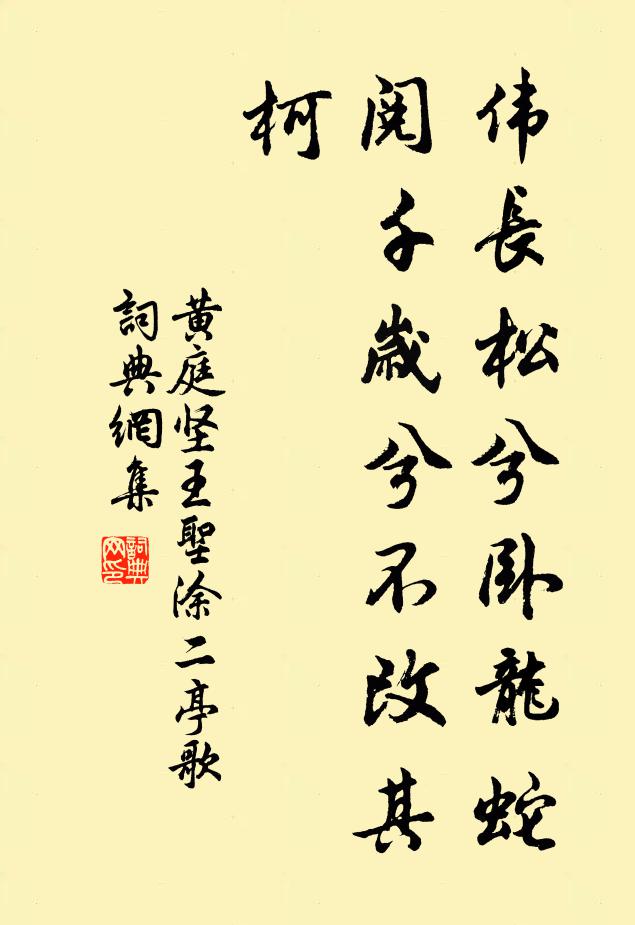 伟長松兮卧龍蛇
閱千歲兮不改其
柯
黄庭坚王聖涂二亭歌
詞典網集
詞典
网印